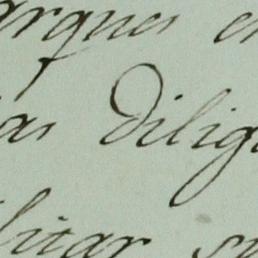 arques e
as dilig
litar s